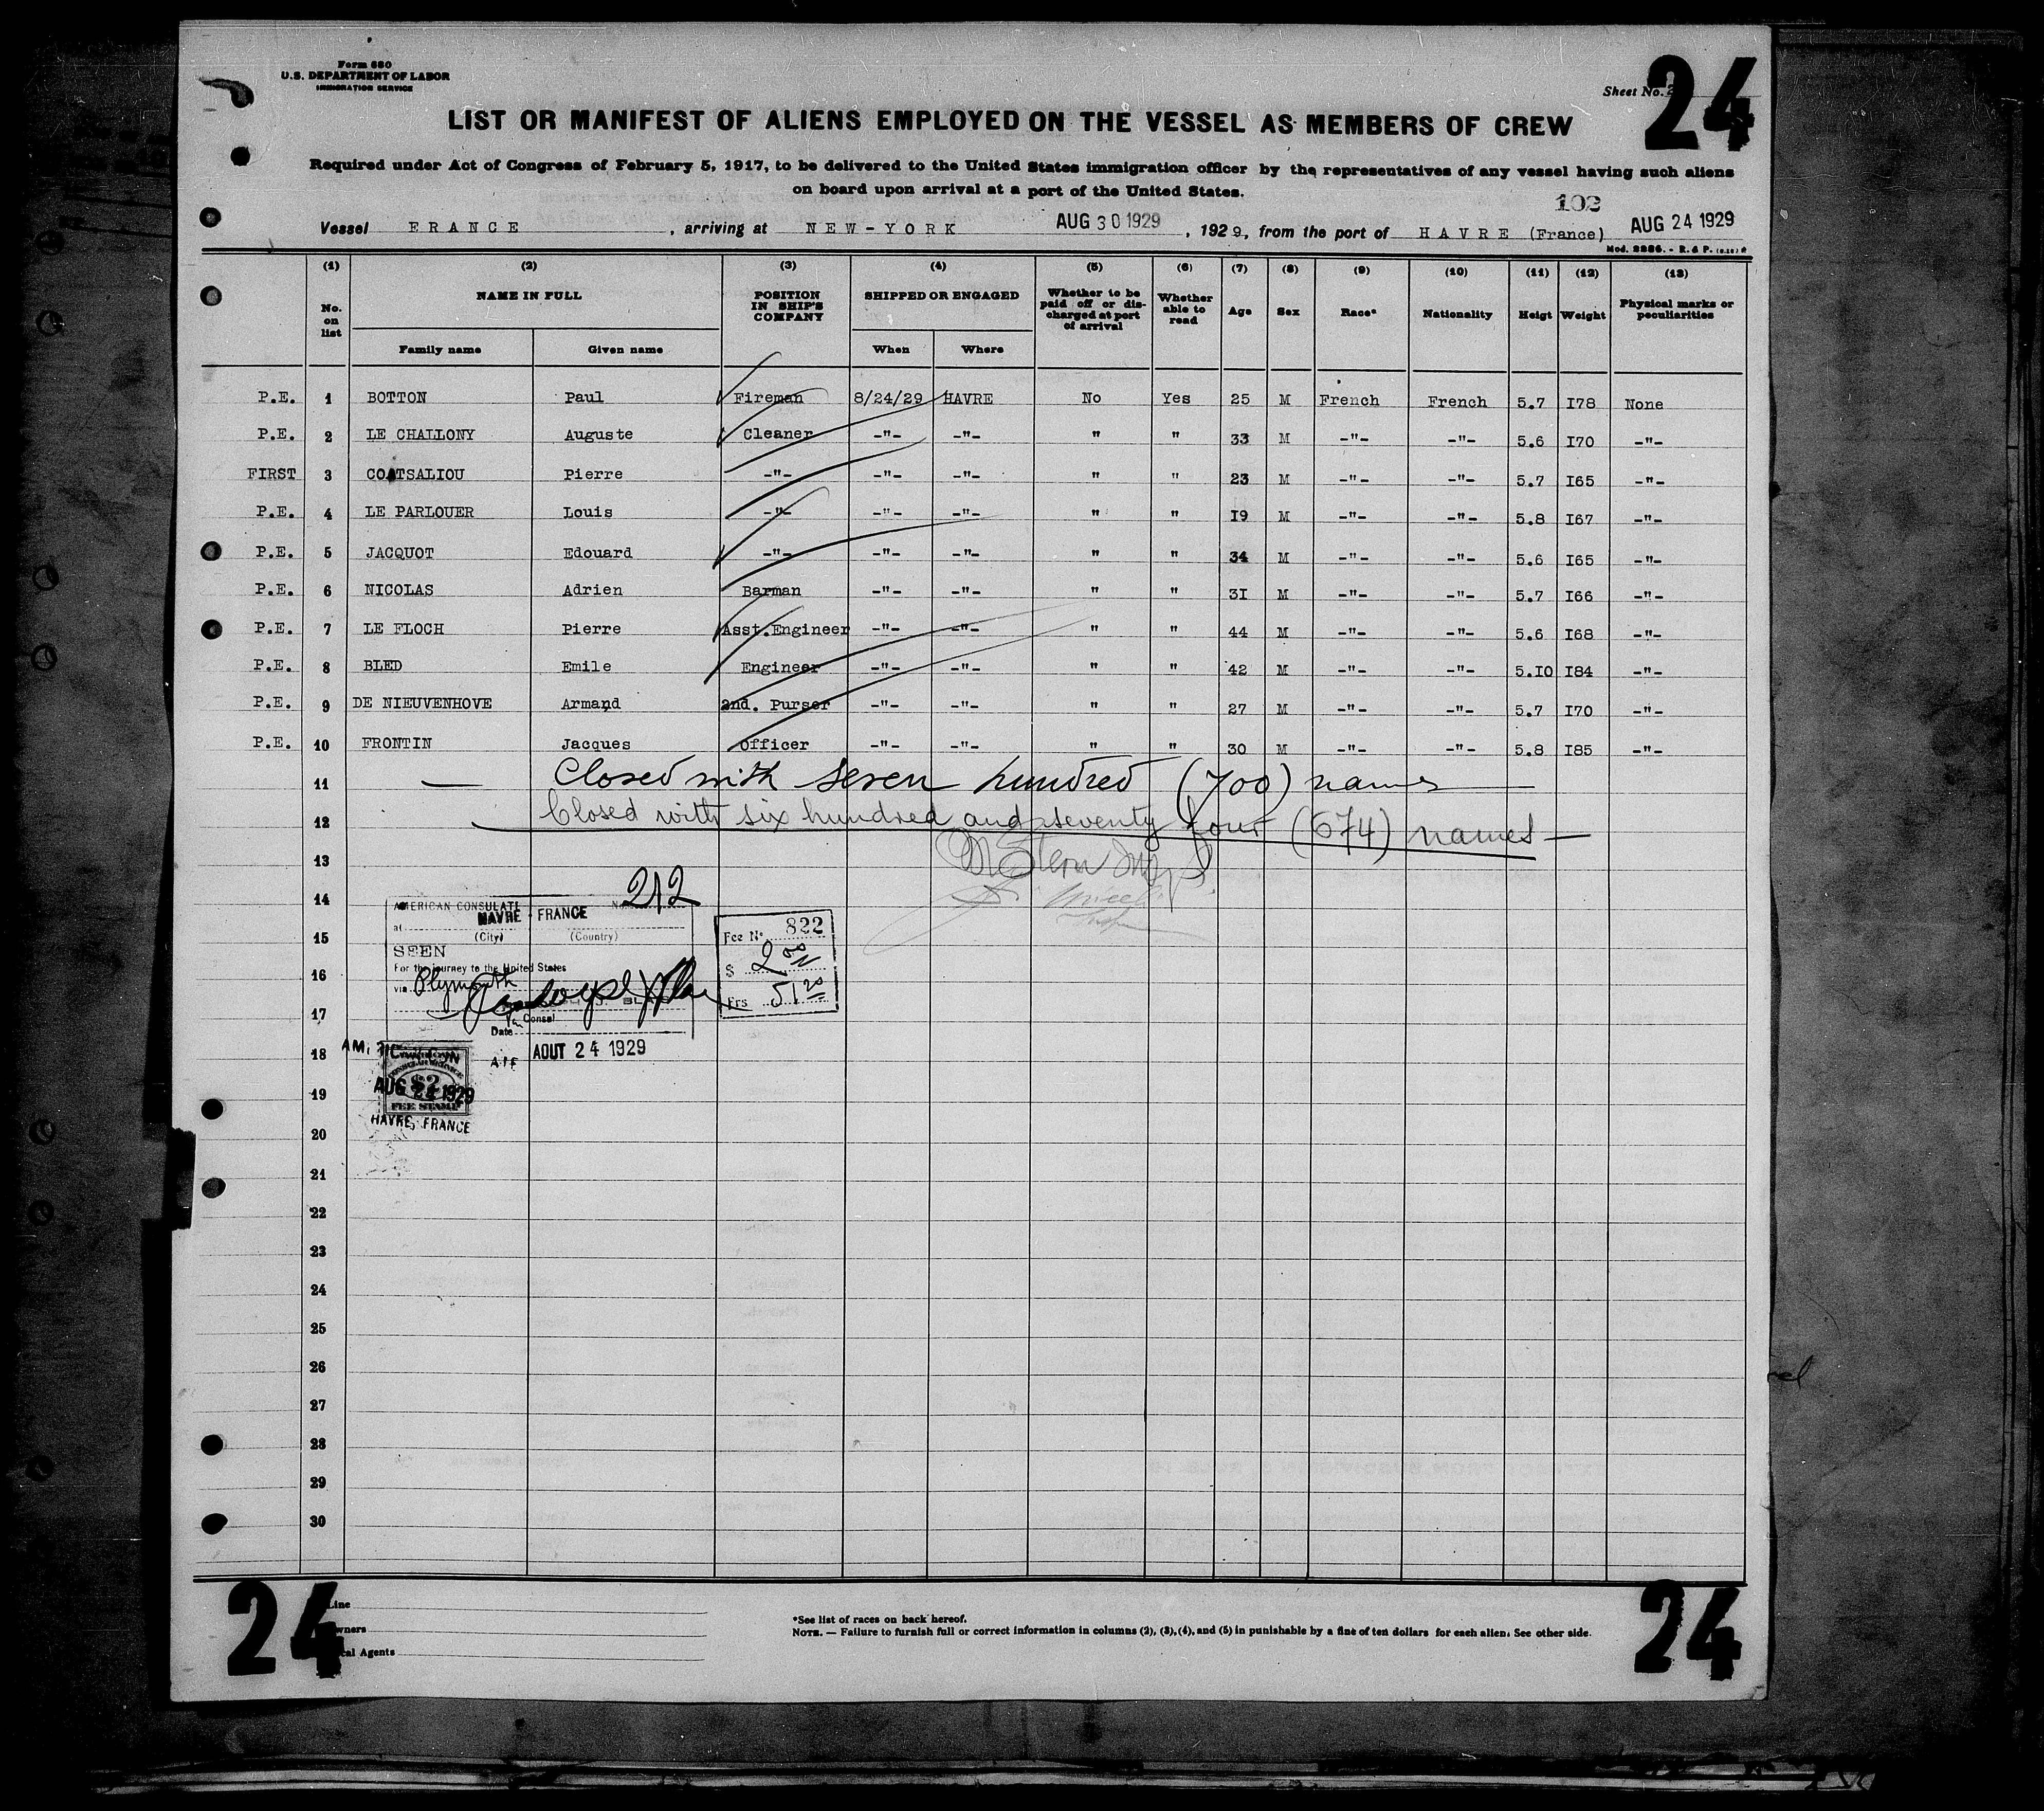 Form 680
U.S. DEPARTMENT OF LABOR
IMMIGRATION SERVICE
Sheet No. 2
24
LIST OR MANIFEST OF ALIENS EMPLOYED ON THE VESSEL AS MEMBERS OF CREW
Required under Act of Congress of February 5, 1917, to be delivered to the United States immigration officer by the representatives of any vessel having such aliens
on board upon arrival at a port of the United States.
102
Vessel FRANCE, arriving at NEW-YORK AUG 30 1929, 1929, from the port of HAVRE (France) AUG 24 1929
Mod. 2286. - R. & P.
(1) (2) (3) (4) (5) (6) (7) (8) (9) (10) (11) (12) (13)
No. on list NAME IN FULL POSITION IN SHIP'S COMPANY SHIPPED OR ENGAGED Whether to be paid off or discharged at port of arrival Whether able to read Age Sex Race* Nationality Heigt Weight Physical marks or peculiarities
Family name Given name When Where
P.E. 1 BOTTON Paul Fireman 8/24/29 HAVRE No Yes 25 M French French 5.7 I78 None
P.E. 2 LE CHALLONY Auguste Cleaner -"- -"- " " 33 M -"- -"- 5.6 I70 -"-
FIRST 3 COATSALIOU Pierre -"- -"- -"- " " 23 M -"- -"- 5.7 I65 -"-
P.E. 4 LE PARLOUER Louis -"- -"- -"- " " I9 M -"- -"- 5.8 I67 -"-
P.E. 5 JACQUOT Edouard -"- -"- -"- " " 34 M -"- -"- 5.6 I65 -"-
P.E. 6 NICOLAS Adrien Barman -"- -"- " " 3I M -"- -"- 5.7 I66 -"-
P.E. 7 LE FLOCH Pierre Asst.Engineer -"- -"- " " 44 M -"- -"- 5.6 I68 -"-
P.E. 8 BLED Emile Engineer -"- -"- " " 42 M -"- -"- 5.I0 I84 -"-
P.E. 9 DE NIEUVENHOVE Armand 2nd. Purser -"- -"- " " 27 M -"- -"- 5.7 I70 -"-
P.E. 10 FRONTIN Jacques Officer -"- -"- " " 30 M -"- -"- 5.8 I85 -"-
11 Closed with seven hundred (700) names
12 Closed with six hundred and seventy four (674) names
13
14
15
16
17
18
19
20
21
22
23
24
25
26
27
28
29
30
AMERICAN CONSULATE No. 212
at HAVRE - FRANCE
(City) (Country)
SEEN
For the journey to the United States
via Plymouth
Consul
Date AOUT 24 1929
Fee No. 822
$ 2.00
Frs 51.20
$2
AUG 24 1929
FEE STAMP
HAVRE, FRANCE
24
Line
*See list of races on back hereof.
NOTE. — Failure to furnish full or correct information in columns (2), (3), (4), and (5) in punishable by a fine of ten dollars for each alien. See other side.
24